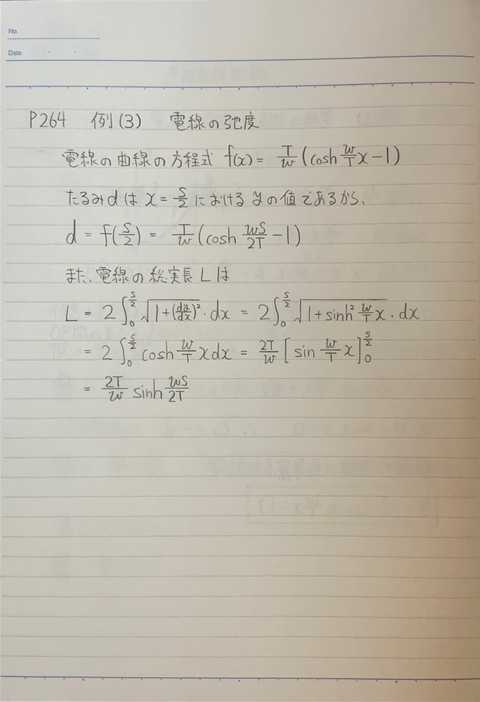 No.
Date
P264 例(3) 電線の弛度
電線の曲線の方程式 f(x) = T/w (cosh w/T x − 1)
たるみdは x = S/2 における yの値であるから、
d = f(S/2) = T/w (cosh wS/2T − 1)
また、電線の総実長 L は
L = 2∫₀^{S/2} √(1 + (dy/dx)²)・dx = 2∫₀^{S/2} √(1 + sinh² w/T x)・dx
= 2∫₀^{S/2} cosh w/T x dx = 2T/w [sin w/T x]₀^{S/2}
= 2T/w sinh wS/2T